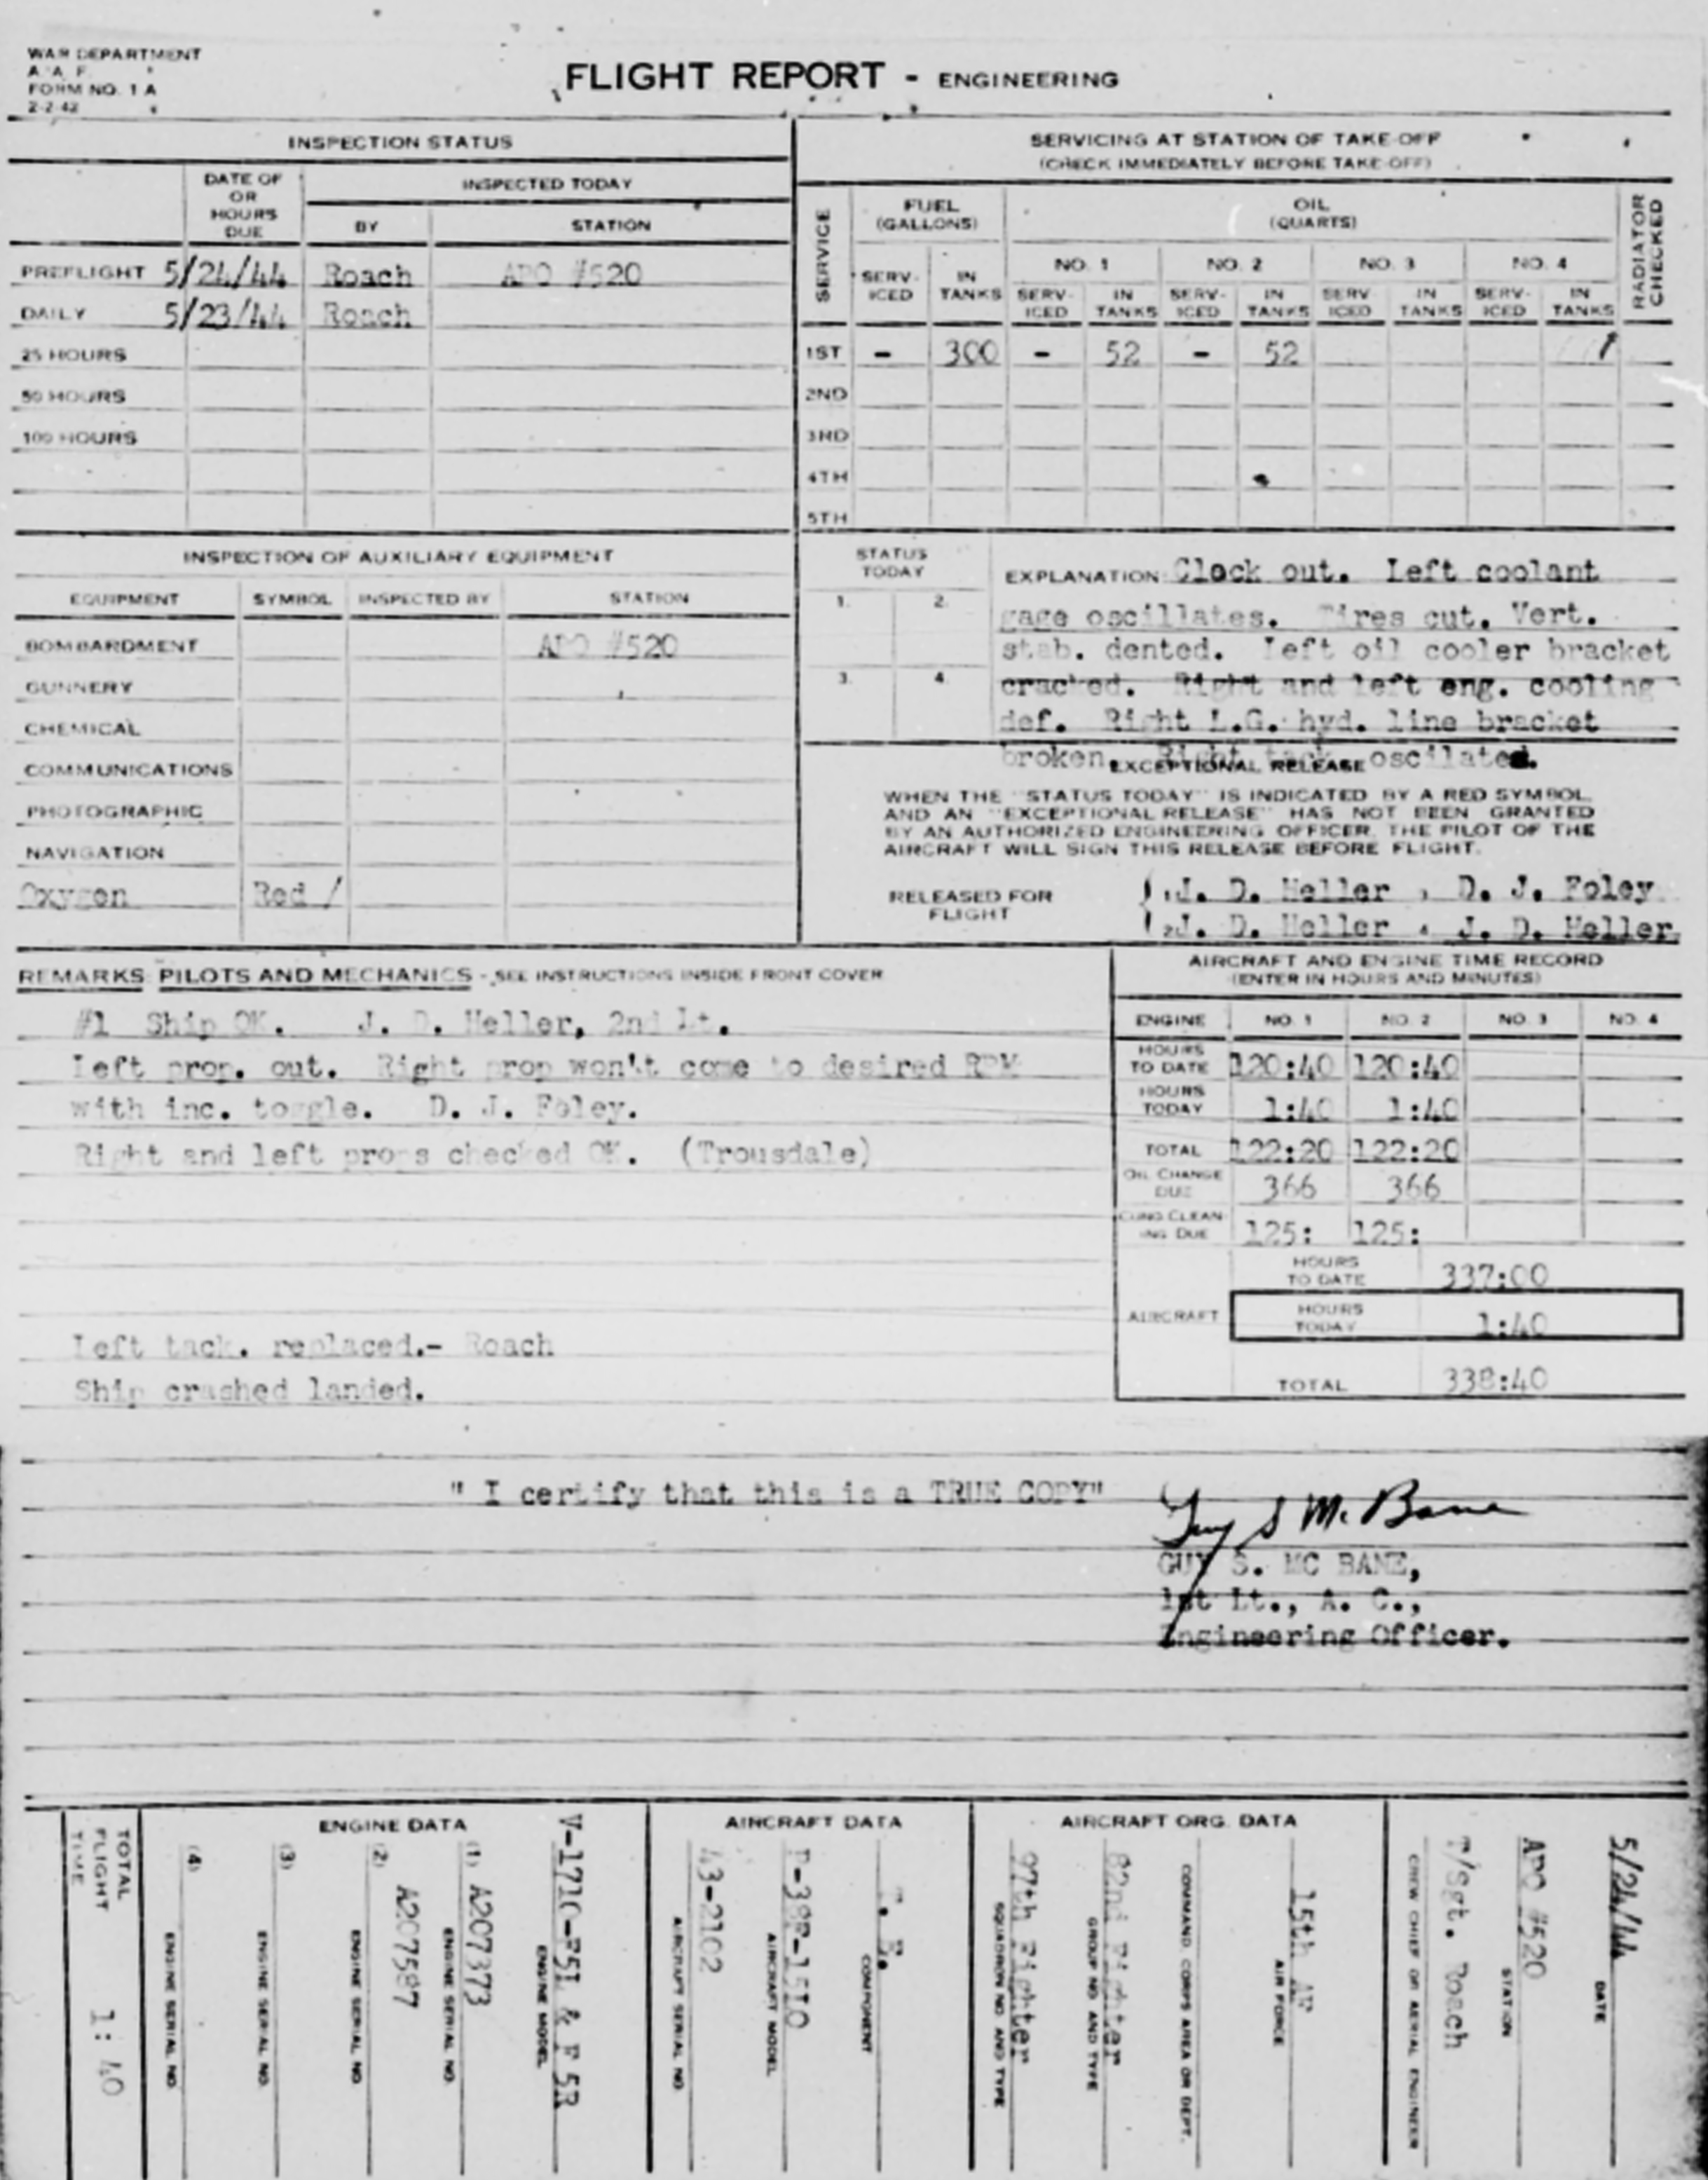 WAR DEPARTMENT
A. A. F.
FORM NO. 1 A
2-2-42
FLIGHT REPORT - ENGINEERING
INSPECTION STATUS
DATE OF OR HOURS DUE
INSPECTED TODAY
BY STATION
PREFLIGHT 5/24/44 Roach APO #520
DAILY 5/23/44 Roach
25 HOURS
50 HOURS
100 HOURS
SERVICING AT STATION OF TAKE-OFF
(CHECK IMMEDIATELY BEFORE TAKE-OFF)
SERVICE
FUEL (GALLONS)
OIL (QUARTS)
RADIATOR CHECKED
NO. 1 NO. 2 NO. 3 NO. 4
SERV-ICED IN TANKS SERV-ICED IN TANKS SERV-ICED IN TANKS SERV-ICED IN TANKS SERV-ICED IN TANKS
1ST - 300 - 52 - 52
2ND
3RD
4TH
5TH
INSPECTION OF AUXILIARY EQUIPMENT
EQUIPMENT SYMBOL INSPECTED BY STATION
BOMBARDMENT APO #520
GUNNERY
CHEMICAL
COMMUNICATIONS
PHOTOGRAPHIC
NAVIGATION
Oxygen Red /
STATUS TODAY
1. 2.
3. 4.
EXPLANATION: Clock out. Left coolant
gage oscillates. Tires cut. Vert.
stab. dented. Left oil cooler bracket
cracked. Right and left eng. cooling
def. Right L.G. hyd. line bracket
broken. Right tack oscilated.
EXCEPTIONAL RELEASE
WHEN THE "STATUS TODAY" IS INDICATED BY A RED SYMBOL
AND AN "EXCEPTIONAL RELEASE" HAS NOT BEEN GRANTED
BY AN AUTHORIZED ENGINEERING OFFICER, THE PILOT OF THE
AIRCRAFT WILL SIGN THIS RELEASE BEFORE FLIGHT.
RELEASED FOR FLIGHT
1. J. D. Heller , D. J. Foley
2. J. D. Heller 4 J. D. Heller
REMARKS: PILOTS AND MECHANICS - SEE INSTRUCTIONS INSIDE FRONT COVER
#1 Ship OK. J. D. Heller, 2nd Lt.
Left prop. out. Right prop won't come to desired RPM
with inc. toggle. D. J. Foley.
Right and left props checked OK. (Trousdale)
Left tack. replaced.- Roach
Ship crashed landed.
AIRCRAFT AND ENGINE TIME RECORD
(ENTER IN HOURS AND MINUTES)
ENGINE NO. 1 NO. 2 NO. 3 NO. 4
HOURS TO DATE 120:40 120:40
HOURS TODAY 1:40 1:40
TOTAL 122:20 122:20
OIL CHANGE DUE 366 366
CUNO CLEAN-ING DUE 125: 125:
AIRCRAFT
HOURS TO DATE 337:00
HOURS TODAY 1:40
TOTAL 338:40
" I certify that this is a TRUE COPY"
Guy S Mc Bane
GUY S. MC BANE,
1st Lt., A. C.,
Engineering Officer.
5/24/44
DATE
APO #520
STATION
T/Sgt. Roach
CREW CHIEF OR AERIAL ENGINEER
AIRCRAFT ORG. DATA
15th AF
AIR FORCE
COMMAND CORPS AREA OR DEPT.
82nd Fighter
GROUP NO. AND TYPE
97th Fighter
SQUADRON NO. AND TYPE
AIRCRAFT DATA
COMPONENT
P-38F-15LO
AIRCRAFT MODEL
43-2102
AIRCRAFT SERIAL NO.
ENGINE DATA
V-1710-F5L & F 5R
ENGINE MODEL
(1) A207373
ENGINE SERIAL NO.
(2) A207587
ENGINE SERIAL NO.
(3)
ENGINE SERIAL NO.
(4)
ENGINE SERIAL NO.
TOTAL FLIGHT TIME 1:40